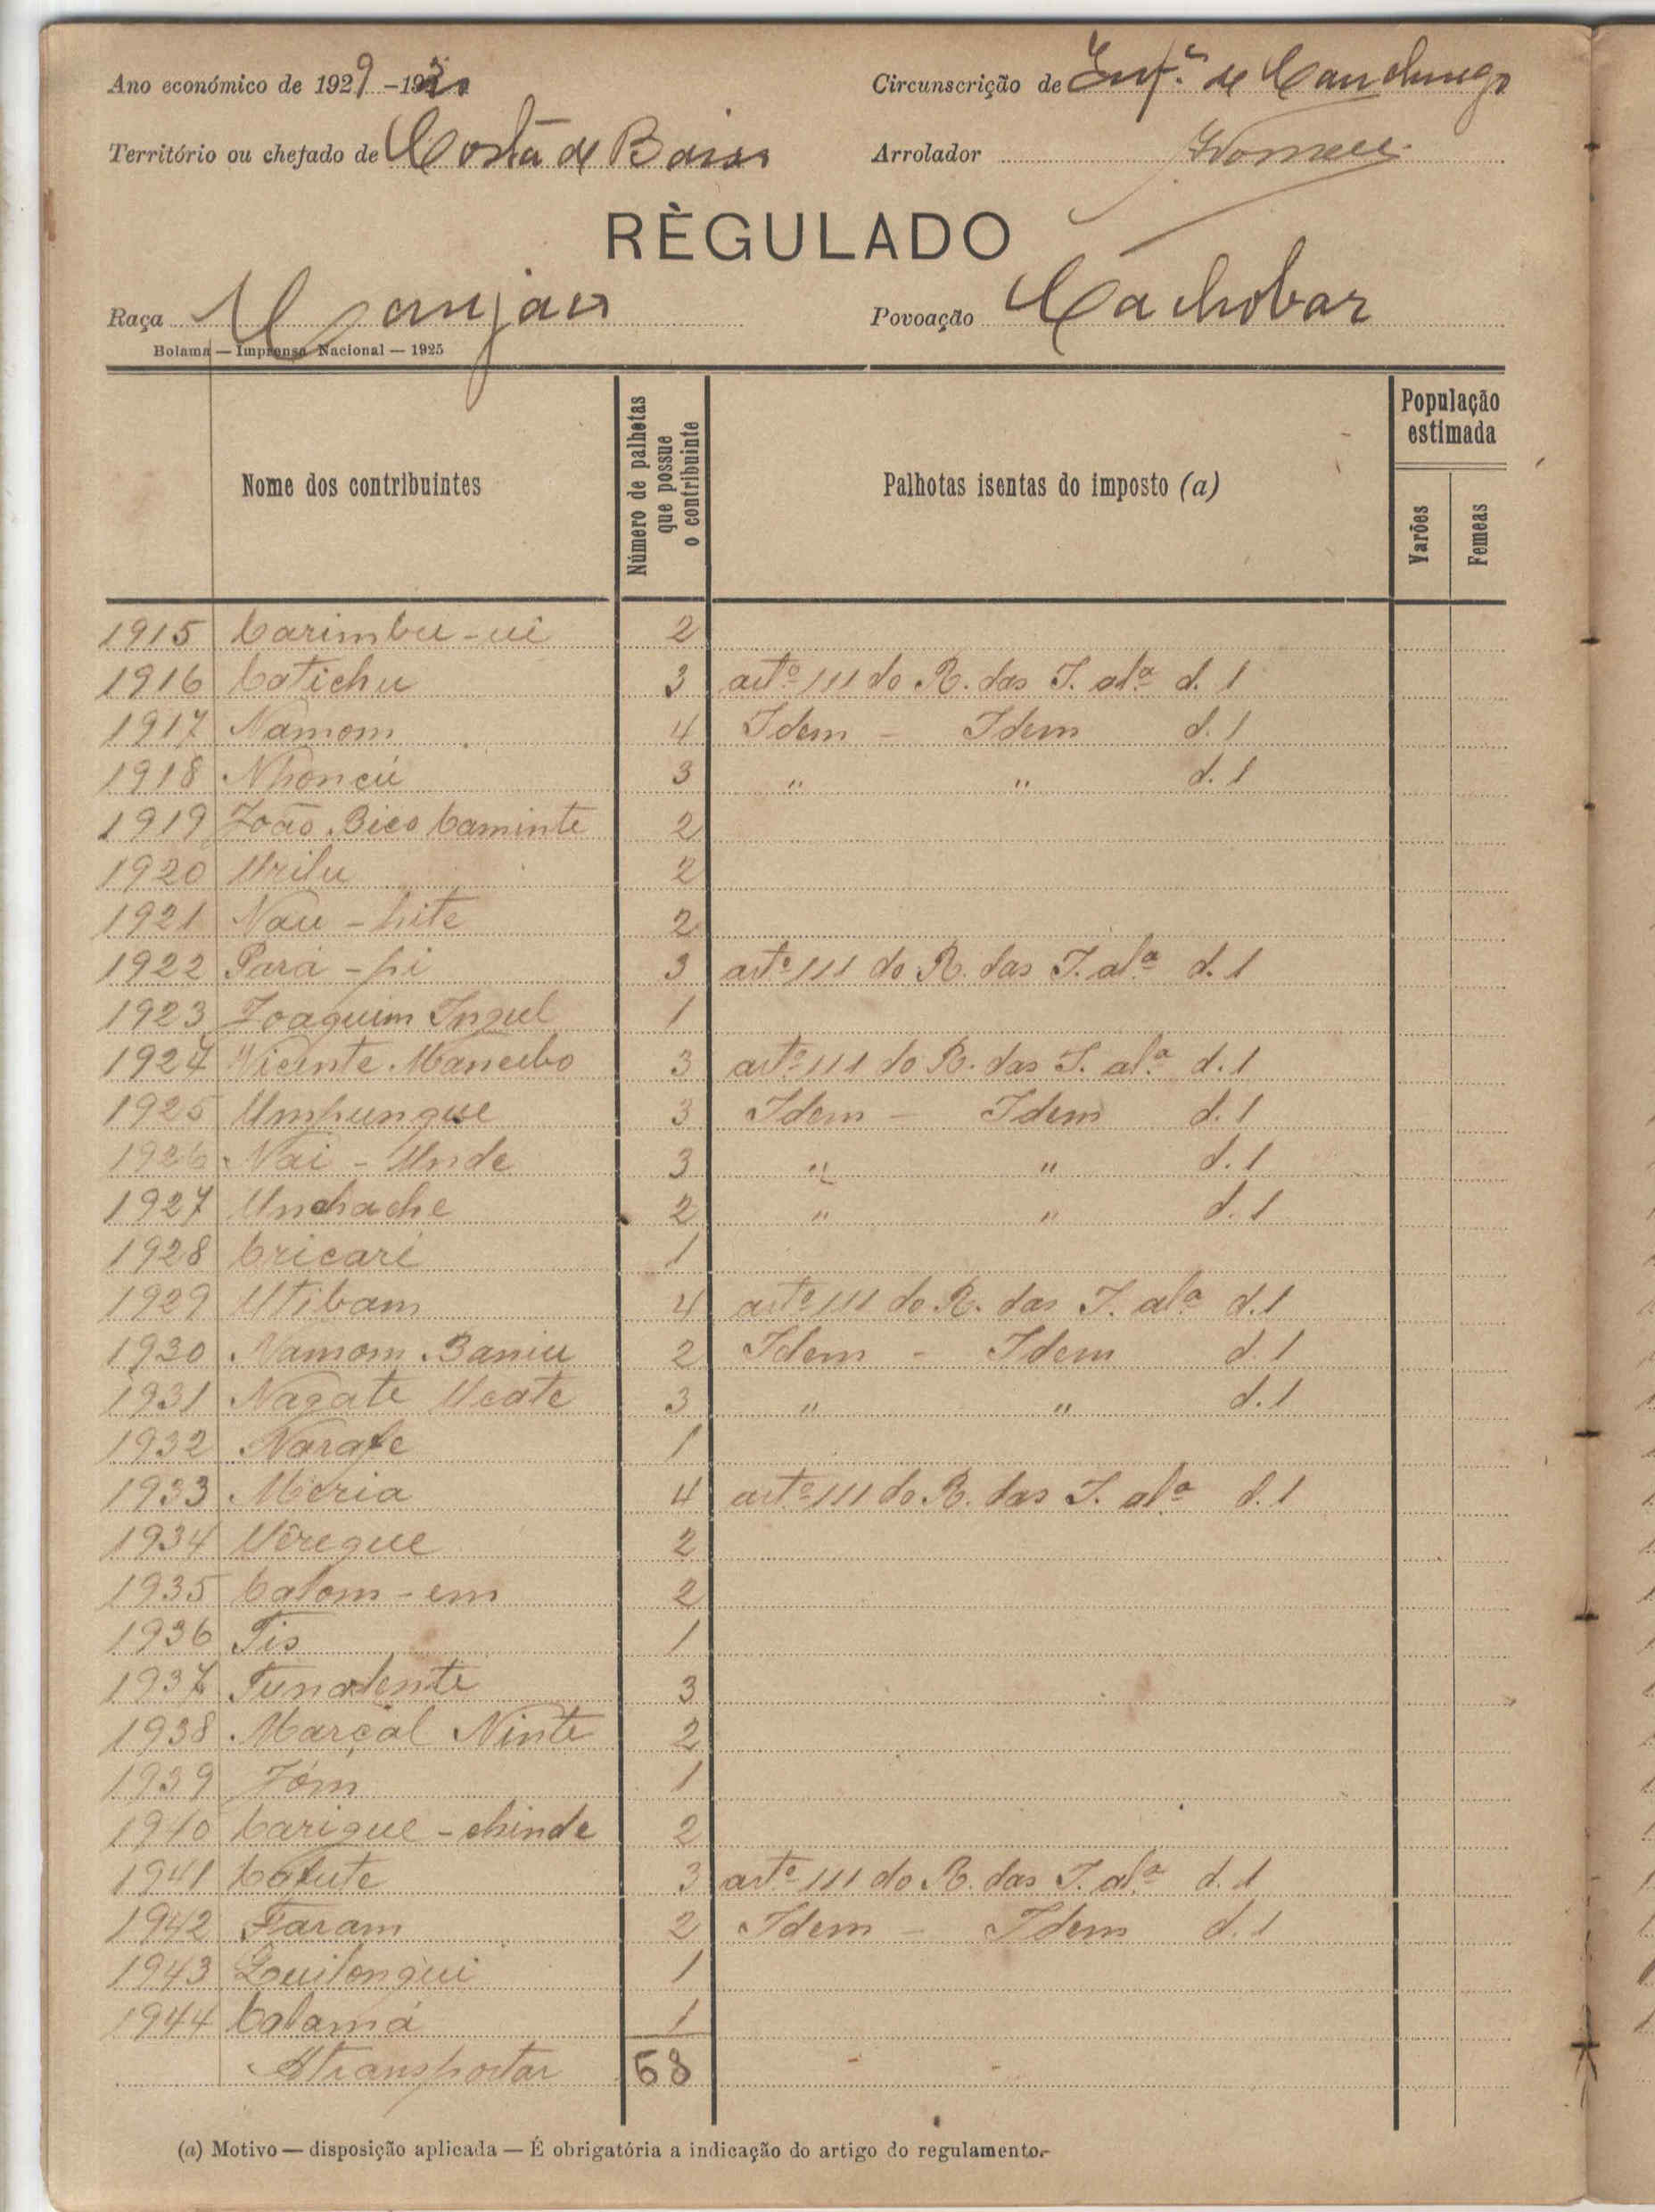 Ano económico de 1929-1930 Circunscrição de de Canchungo
Território ou chefado de Costa de Baixo Arrolador
RÈGULADO
Raça Manjaco Povoação Cachobar
Bolama — Imprensa Nacional — 1925
Nome dos contribuintes Número de palhetas que possue o contribuinte Palhotas isentas do imposto (a) População estimada Varões Femeas
1915 Carimbu-ui 2
1916 Catichu 3 artº 111 do R. das I. alª d. 1
1917 Namom 4 Idem - Idem d. 1
1918 Nhoncú 3 " " d. 1
1919 João Bico Caminte 2
1920 Urilu 2
1921 Nau-hite 2
1922 Pará-pi 3 artº 111 do R. das I. alª d. 1
1923 Joaquim Ingul 1
1924 Vicente Mancebo 3 artº 111 do R. das I. alª d. 1
1925 Umpungue 3 Idem - Idem d. 1
1926 Nai-Unde 3 " " d. 1
1927 Unchache 2 " " d. 1
1928 Cricari 1
1929 Utibam 4 artº 111 do R. das I. alª d. 1
1930 Namom Baniu 2 Idem - Idem d. 1
1931 Nagate Ucate 3 " " d. 1
1932 Narafe 1
1933 Méria 4 artº 111 do R. das I. alª d. 1
1934 Uêregue 2
1935 Catom-em 2
1936 Tis 1
1937 Tunalente 3
1938 Marçal Ninte 2
1939 Jóm 1
1940 Carigue-chinde 2
1941 Catute 3 artº 111 do R. das I. alª d. 1
1942 Faram 2 Idem - Idem d. 1
1943 Quilongui 1
1944 Calamá 1
A transportar 68
(a) Motivo — disposição aplicada — É obrigatória a indicação do artigo do regulamento.